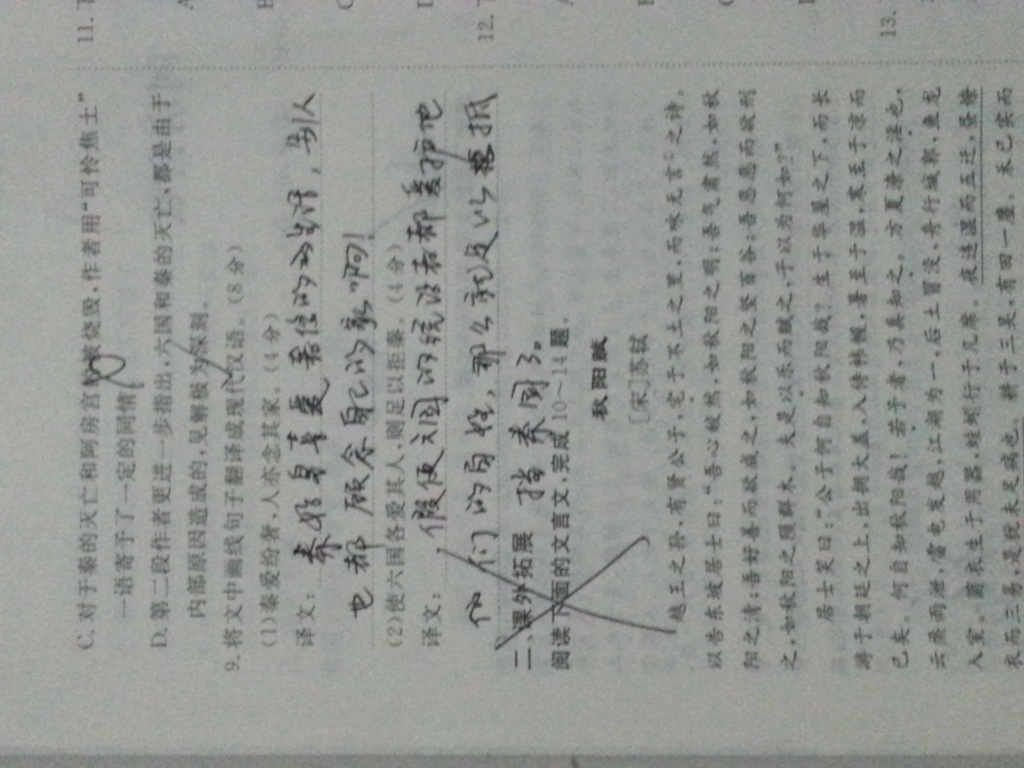 C. 对于秦的灭亡和阿房宫被烧毁,作者用“可怜焦土”
一语寄予了一定的同情。
D. 第二段作者更进一步指出,六国和秦的灭亡,都是由于
内部原因造成的,见解极为深刻。
9. 将文中画线句子翻译成现代汉语。(8分)
(1)秦爱纷奢,人亦念其家。(4分)
译文: 秦始皇喜爱 的 , 别人
也都顾念自己的家啊!
(2)使六国各爱其人,则足以拒秦。(4分)
译文: 假使六国的统治者都爱护他
他们的百姓,那么就足以 抵
挡秦国了。
二、课外拓展
阅读下面的文言文,完成10~14题。
秋阳赋
[宋]苏轼
越王之孙,有贤公子,宅于不土之里,而咏无言之诗。
以告东坡居士曰:“吾心皎然,如秋阳之明;吾气肃然,如秋
阳之清;吾好善而欲成之,如秋阳之坚百谷;吾恶恶而欲刑
之,如秋阳之陨群木。夫是以乐而赋之,子以为何如?”
居士笑曰:“公子何自知秋阳哉?生于华屋之下,而长
游于朝廷之上,出拥大盖,入侍帏幄,暑至于温,寒至于凉而
已矣。何自知秋阳哉!若予者,乃真知之。方夏潦之淫也,
云烝雨泄,雷电发越,江湖为一,后土冒没,舟行城郭,鱼龙
入室。菌衣生于用器,蛙蚓行于几席。夜违湿而五迁,昼燎
衣而三易,是犹未足病也。耕于三吴,有田一廛。禾已实而
11.
12.
13.